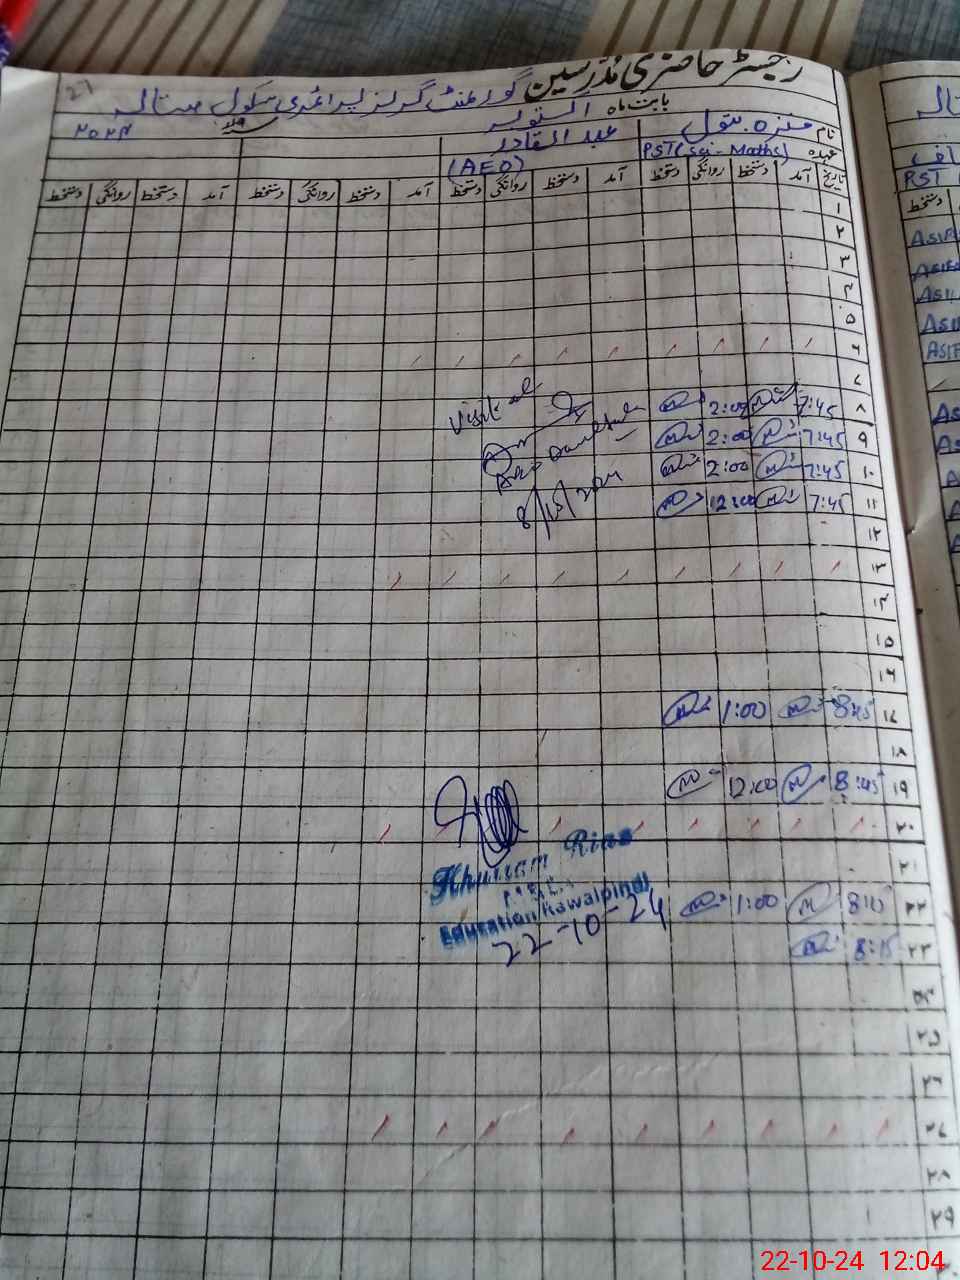 رجسٹر حاضری مدرسین گورنمنٹ گرلز پرائمری سکول
27
بابت ماہ اکتوبر ۲۰۲۴
نام منزہ بتول عبدالقادر
عہدہ PST (Sci-Maths) (AEO)
تاریخ آمد دستخط روانگی دستخط آمد دستخط روانگی دستخط آمد دستخط روانگی دستخط آمد دستخط روانگی دستخط
PST
دستخط
۱
۲
۳
۴
۵
۶
۷
۸ 7:45 2:00
Visited
۹ 7:45 2:00
۱۰ 7:45 2:00
۱۱ 7:45 12:00
۱۲
۱۳
۱۴
۱۵
۱۶
۱۷ 8:45 1:00
۱۸
۱۹ 8:45 12:00
۲۰
۲۱
Khurram Riaz
Education Rawalpindi
۲۲ 8:15 1:00
22-10-24
۲۳ 8:15
۲۴
۲۵
۲۶
۲۷
۲۸
۲۹
22-10-24 12:04